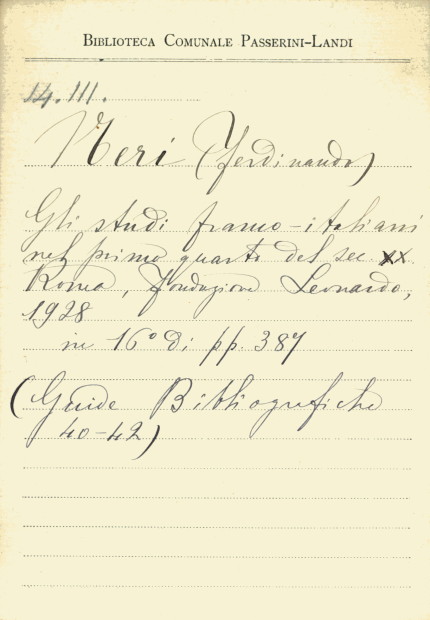 BIBLIOTECA COMUNALE PASSERINI-LANDI
14.III.
Neri (Ferdinando)
Gli studi franco-italiani
nel primo quarto del sec. XX.
Roma, Fondazione Leonardo,
1928
in 16° di pp. 387
(Guide Bibliografiche
40-42)